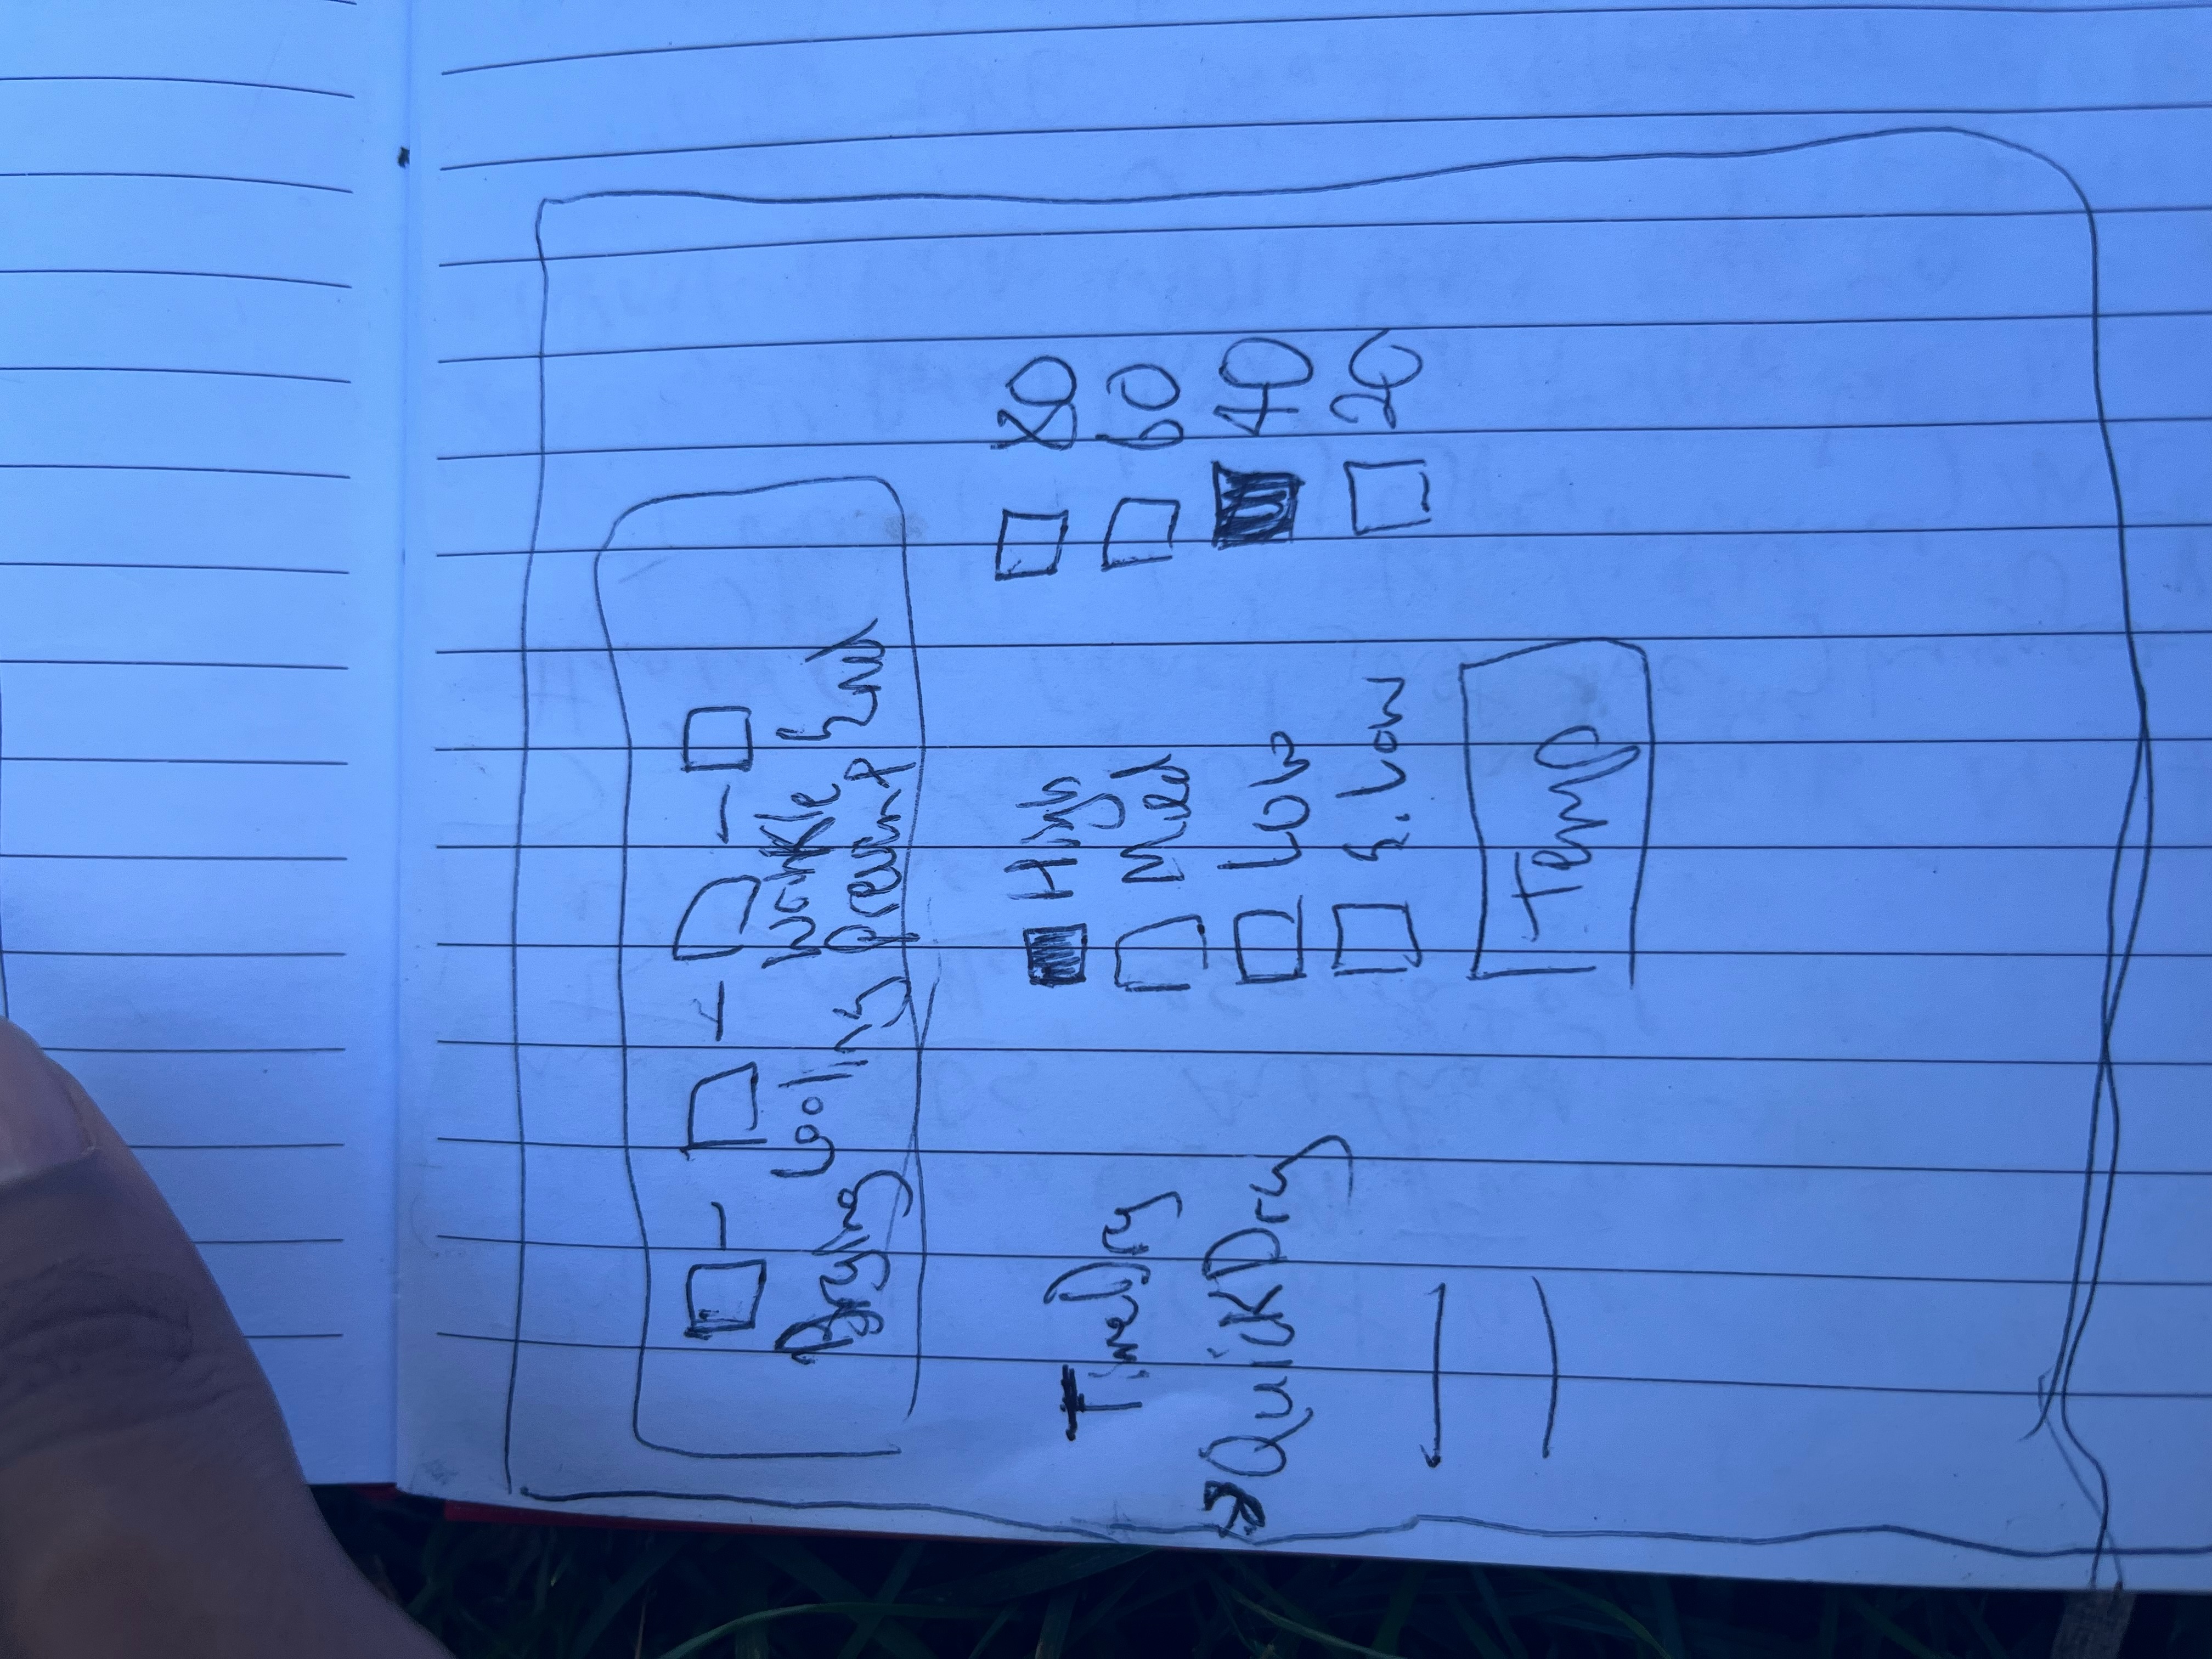 Drying Cooling Wrinkle Prevent End
TimeDry
QuickDry
High
Med
Low
E. Low
Temp
80
60
40
20